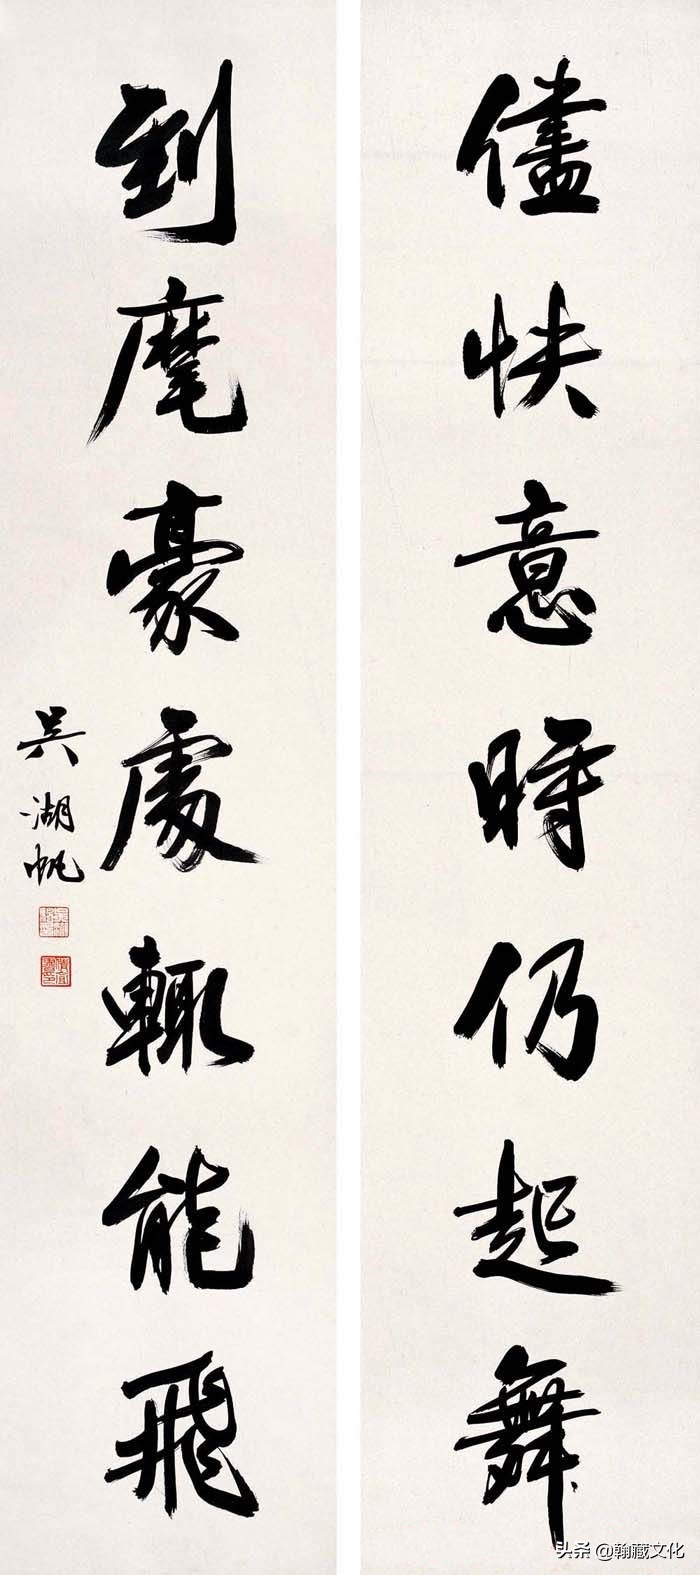 儘快意時仍起舞
到麾豪處輒能飛
吴湖帆
头条 @翰藏文化